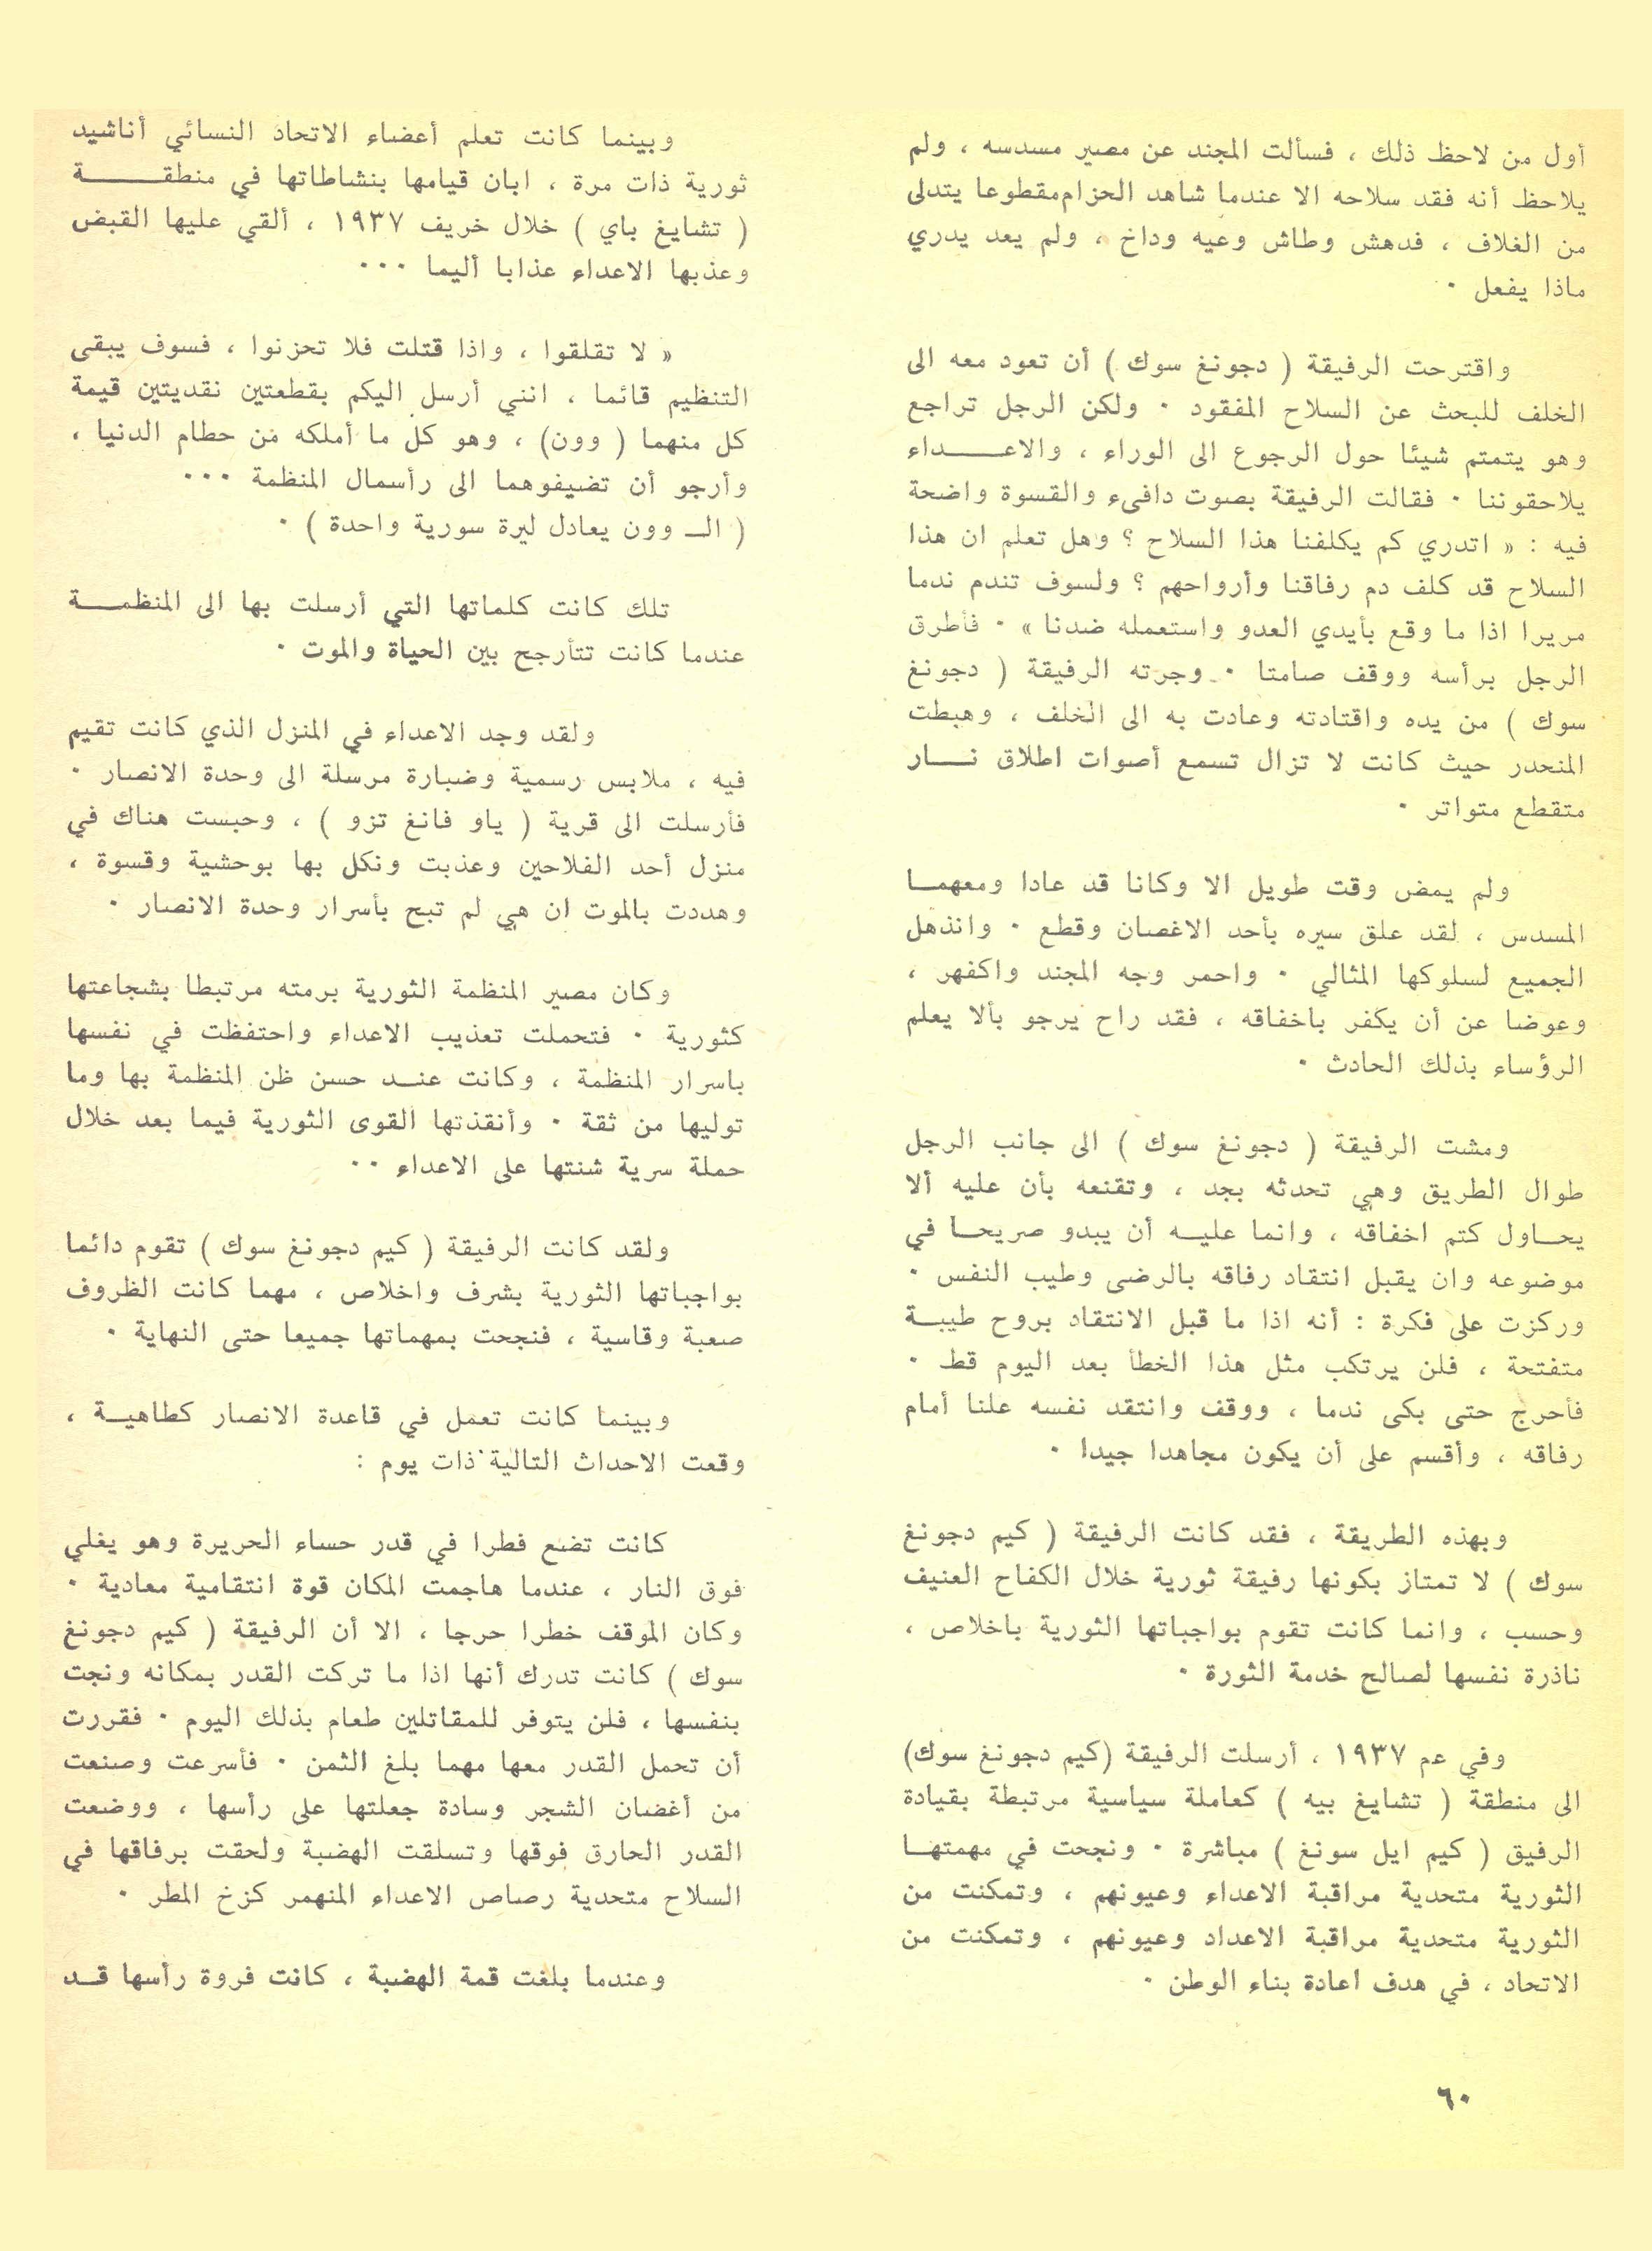 أول من لاحظ ذلك ، فسألت المجند عن مصير مسدسه ، ولم
يلاحظ أنه فقد سلاحه الا عندما شاهد الحزام مقطوعا يتدلى
من الغلاف ، فدهش وطاش وعيه وداخ ، ولم يعد يدري
ماذا يفعل ٠
واقترحت الرفيقة ( دجونغ سوك ) أن تعود معه الى
الخلف للبحث عن السلاح المفقود ٠ ولكن الرجل تراجع
وهو يتمتم شيئا حول الرجوع الى الوراء ، والاعـــداء
يلاحقوننا ٠ فقالت الرفيقة بصوت دافىء والقسوة واضحة
فيه : « اتدري كم يكلفنا هذا السلاح ؟ وهل تعلم ان هذا
السلاح قد كلف دم رفاقنا وأرواحهم ؟ ولسوف تندم ندما
مريرا اذا ما وقع بأيدي العدو واستعمله ضدنا » ٠ فأطرق
الرجل برأسه ووقف صامتا ٠ وجرته الرفيقة ( دجونغ
سوك ) من يده واقتادته وعادت به الى الخلف ، وهبطت
المنحدر حيث كانت لا تزال تسمع أصوات اطلاق نـــار
متقطع متواتر ٠
ولم يمض وقت طويل الا وكانا قد عادا ومعهمـا
المسدس ، لقد علق سيره بأحد الاغصان وقطع ٠ وانذهل
الجميع لسلوكها المثالي ٠ واحمر وجه المجند واكفهر ،
وعوضا عن أن يكفر باخفاقه ، فقد راح يرجو بألا يعلم
الرؤساء بذلك الحادث ٠
ومشت الرفيقة ( دجونغ سوك ) الى جانب الرجل
طوال الطريق وهي تحدثه بجد ، وتقنعه بأن عليه ألا
يحـاول كتم اخفاقه ، وانما عليـه أن يبدو صريحـا في
موضوعه وان يقبل انتقاد رفاقه بالرضى وطيب النفس ٠
وركزت على فكرة : أنه اذا ما قبل الانتقاد بروح طيبـة
متفتحة ، فلن يرتكب مثل هذا الخطأ بعد اليوم قط ٠
فأحرج حتى بكى ندما ، ووقف وانتقد نفسه علنا أمام
رفاقه ، وأقسم على أن يكون مجاهدا جيدا ٠
وبهذه الطريقة ، فقد كانت الرفيقة ( كيم دجونغ
سوك ) لا تمتاز بكونها رفيقة ثورية خلال الكفاح العنيف
وحسب ، وانما كانت تقوم بواجباتها الثورية باخلاص ،
ناذرة نفسها لصالح خدمة الثورة ٠
وفي عم ١٩٣٧ ، أرسلت الرفيقة (كيم دجونغ سوك)
الى منطقة ( تشايغ بيه ) كعاملة سياسية مرتبطة بقيادة
الرفيق ( كيم ايل سونغ ) مباشرة ٠ ونجحت في مهمتهـا
الثورية متحدية مراقبة الاعداء وعيونهم ، وتمكنت من
الثورية متحدية مراقبة الاعداد وعيونهم ، وتمكنت من
الاتحاد ، في هدف اعادة بناء الوطن ٠
وبينما كانت تعلم أعضاء الاتحاد النسائي أناشيد
ثورية ذات مرة ، ابان قيامها بنشاطاتها في منطقـــة
( تشايغ باي ) خلال خريف ١٩٣٧ ، ألقي عليها القبض
وعذبها الاعداء عذابا أليما ٠٠٠
« لا تقلقوا ، واذا قتلت فلا تحزنوا ، فسوف يبقى
التنظيم قائما ، انني أرسل اليكم بقطعتين نقديتين قيمة
كل منهما ( وون) ، وهو كل ما أملكه من حطام الدنيا ،
وأرجو أن تضيفوهما الى رأسمال المنظمة ٠٠٠
( الـ وون يعادل ليرة سورية واحدة ) ٠
تلك كانت كلماتها التي أرسلت بها الى المنظمـة
عندما كانت تتأرجح بين الحياة والموت ٠
ولقد وجد الاعداء في المنزل الذي كانت تقيم
فيه ، ملابس رسمية وضبارة مرسلة الى وحدة الانصار ٠
فأرسلت الى قرية ( ياو فانغ تزو ) ، وحبست هناك في
منزل أحد الفلاحين وعذبت ونكل بها بوحشية وقسوة ،
وهددت بالموت ان هي لم تبح بأسرار وحدة الانصار ٠
وكان مصير المنظمة الثورية برمته مرتبطا بشجاعتها
كثورية ٠ فتحملت تعذيب الاعداء واحتفظت في نفسها
باسرار المنظمة ، وكانت عنـد حسن ظن المنظمة بها وما
توليها من ثقة ٠ وأنقذتها القوى الثورية فيما بعد خلال
حملة سرية شنتها على الاعداء ٠٠
ولقد كانت الرفيقة ( كيم دجونغ سوك ) تقوم دائما
بواجباتها الثورية بشرف واخلاص ، مهما كانت الظروف
صعبة وقاسية ، فنجحت بمهماتها جميعا حتى النهاية ٠
وبينما كانت تعمل في قاعدة الانصار كطاهيـة ،
وقعت الاحداث التالية ذات يوم :
كانت تضع فطرا في قدر حساء الحريرة وهو يغلي
فوق النار ، عندما هاجمت المكان قوة انتقامية معادية ٠
وكان الموقف خطرا حرجا ، الا أن الرفيقة ( كيم دجونغ
سوك ) كانت تدرك أنها اذا ما تركت القدر بمكانه ونجت
بنفسها ، فلن يتوفر للمقاتلين طعام بذلك اليوم ٠ فقررت
أن تحمل القدر معها مهما بلغ الثمن ٠ فأسرعت وصنعت
من أغضان الشجر وسادة جعلتها على رأسها ، ووضعت
القدر الحارق فوقها وتسلقت الهضبة ولحقت برفاقها في
السلاح متحدية رصاص الاعداء المنهمر كزخ المطر ٠
وعندما بلغت قمة الهضبة ، كانت فروة رأسها قـد
٦٠